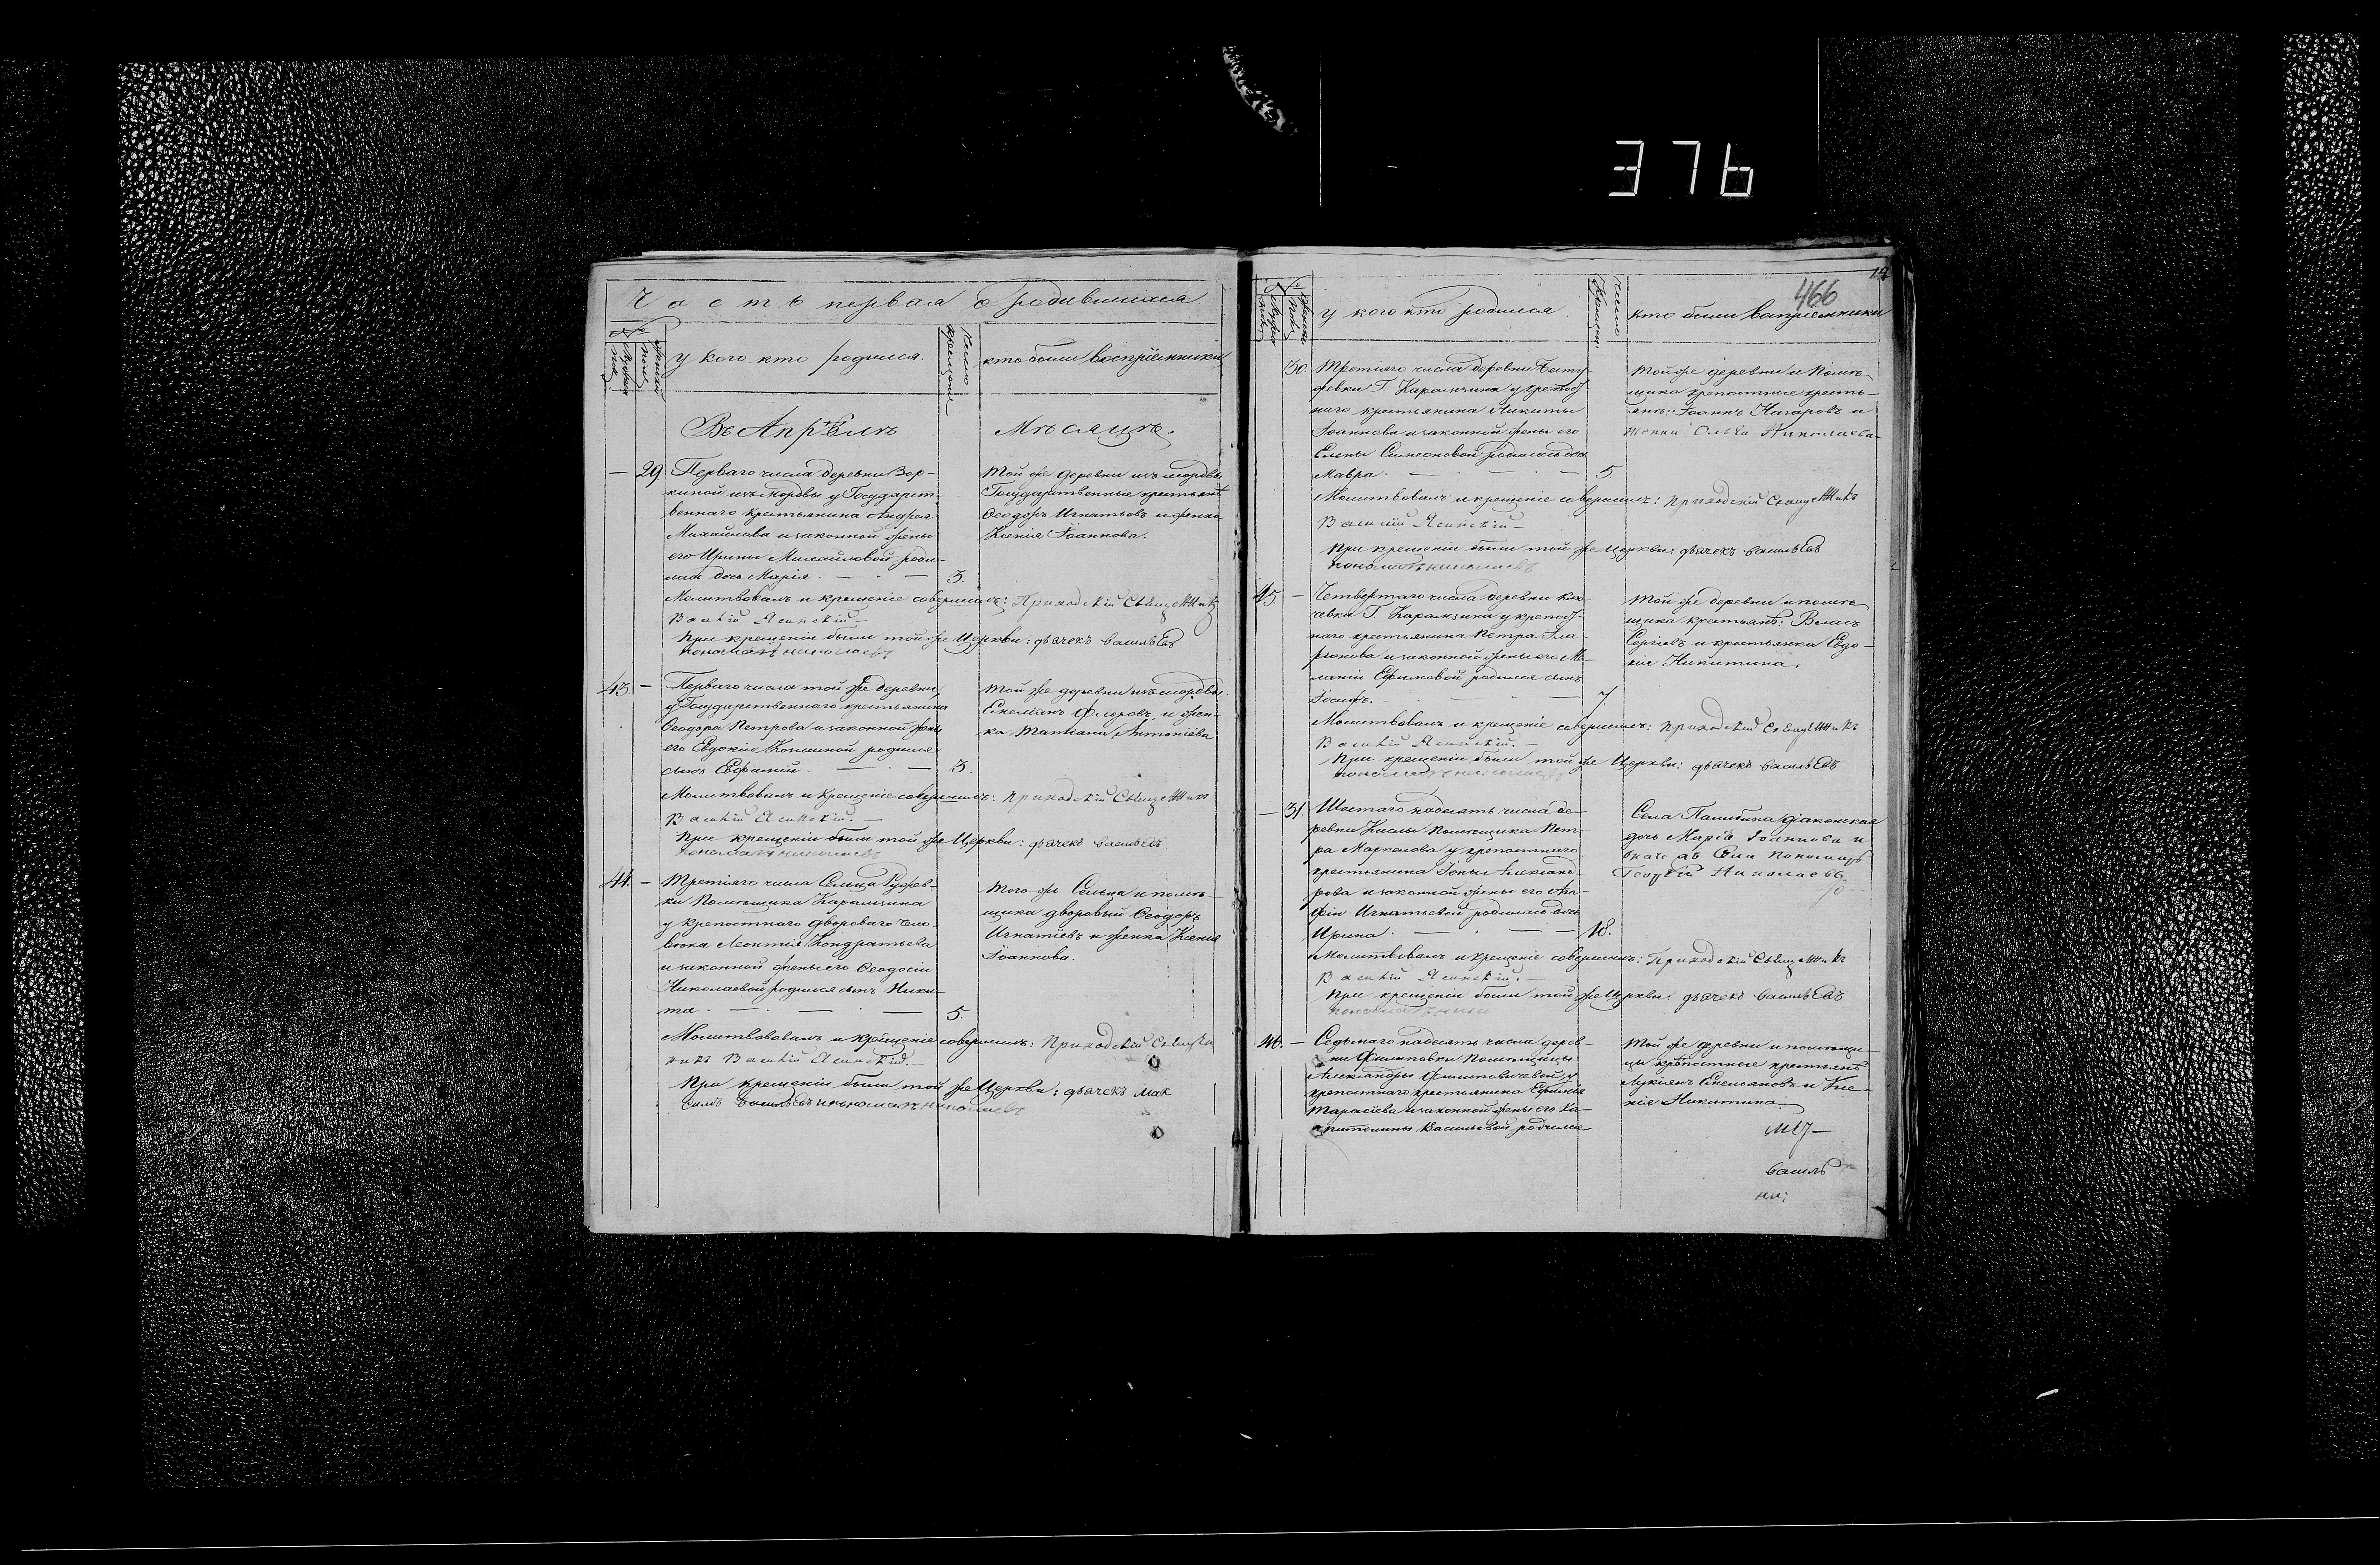 376
Часть первая о родившихся
№
мужеска пола
женска пола
у кого кто родился.
Число крещенія
кто были воспріемники
Въ Апрѣлѣ Мѣсяцѣ.
— 29 Перваго числа деревни Зор-
киной изъ мордвы у Государст-
веннаго крестьянина Андрея
Михайлова и законной жены
его Ирины Михайловой роди-
лась дочь Марія. — 3.
той же деревни изъ мордвы
Государственные крестьянъ
Ѳеодоръ Игнатьевъ и женка
Ксенія Іоаннова.
Молитвовалъ и крещеніе совершилъ: Приходскій Священникъ
Василій Ясинскій —
При крещеніи были той же Церкви: дьячекъ васильевъ
пономарь николаевъ
43. — Перваго числа той же деревни
у Государственнаго крестьянина
Ѳеодора Петрова и законной жены
его Евдокіи Козминой родился
сынъ Евфимій. — 3.
той же деревни изъ мордвы
Емеліанъ и жен-
ка Татіана Антоніева
Молитвовалъ и крещеніе совершилъ: Приходскій Священникъ
Василій Ясинскій. —
При крещеніи были той же Церкви: дьячекъ васильевъ
пономарь николаевъ
44. — Третіяго числа Сельца
ки Помѣщика Карамзина
у крепостнаго двороваго чело-
вѣка Леонтія Кондратьева
и законной жены его Ѳеодосіи
Николаевой родился сынъ Ники-
та. — 5.
того же Сельца и помѣ-
щика дворовый Ѳеодоръ
Игнатіевъ и женка Ксенія
Іоаннова.
Молитвовалъ и крещеніе совершилъ: Приходскій Священ
никъ Василій Ясинскій. —
При крещеніи были той же Церкви: дьячекъ мак
симъ васильевъ и пономарь николаевъ
466
№
у кого кто родился
Число Крещен.
кто были воспріемники
30. Третіяго числа деревни
Г. Карамзина у крепост
наго крестьянина Никиты
Іоаннова и законной жены его
Елены Симеоновой родилась дочь
Мавра. — 5
той же деревни и Помѣ-
щика крепостные кресть-
янъ: Іоаннъ Назаровъ и
женка Ольга Николаева
Молитвовалъ и крещеніе совершилъ: Приходскій Священникъ
Василій Ясинскій —
При крещеніи были той же Церкви: дьячекъ васильевъ
пономарь николаевъ
45. — Четвертаго числа деревни
Г. Карамзина у крепост-
наго крестьянина Петра Ила-
ріонова и законной жены его Ме-
ланіи Ефимовой родился сынъ
Іосифъ. — 7.
той же деревни и помѣ
щика крестьянъ: Власъ
Сергіевъ и крестьянка Евдо-
кія Никитина.
Молитвовалъ и крещеніе совершилъ: Приходскій Священникъ
Василій Ясинскій. —
При крещеніи были той же Церкви: дьячекъ васильевъ
пономарь николаевъ
— 31 Шестаго надесять числа де-
ревни Помѣщика Пет-
ра Маркелова у крепостнаго
крестьянина Іоны Александ-
рова и законной жены его
Игнатьевой родилась дочь
Ирина. — 18.
Села діаконская
дочь Марія Іоаннова и
Села пономарь
Георгій Николаевъ
Молитвовалъ и крещеніе совершилъ: Приходскій Священникъ
Василій Ясинскій. —
При крещеніи были той же Церкви: дьячекъ васильевъ
46. — Седьмаго надесять числа дерев-
ни Филиповки Помѣщицы
Александры Филиповичевой, у
крепостнаго крестьянина Ефимія
Тарасіева и законной жены его Ка-
питолины Васильевой родился
той же деревни и помѣщи-
цы крѣпостные крестьянъ
Лукіянъ Емельяновъ и
Никитина
василь